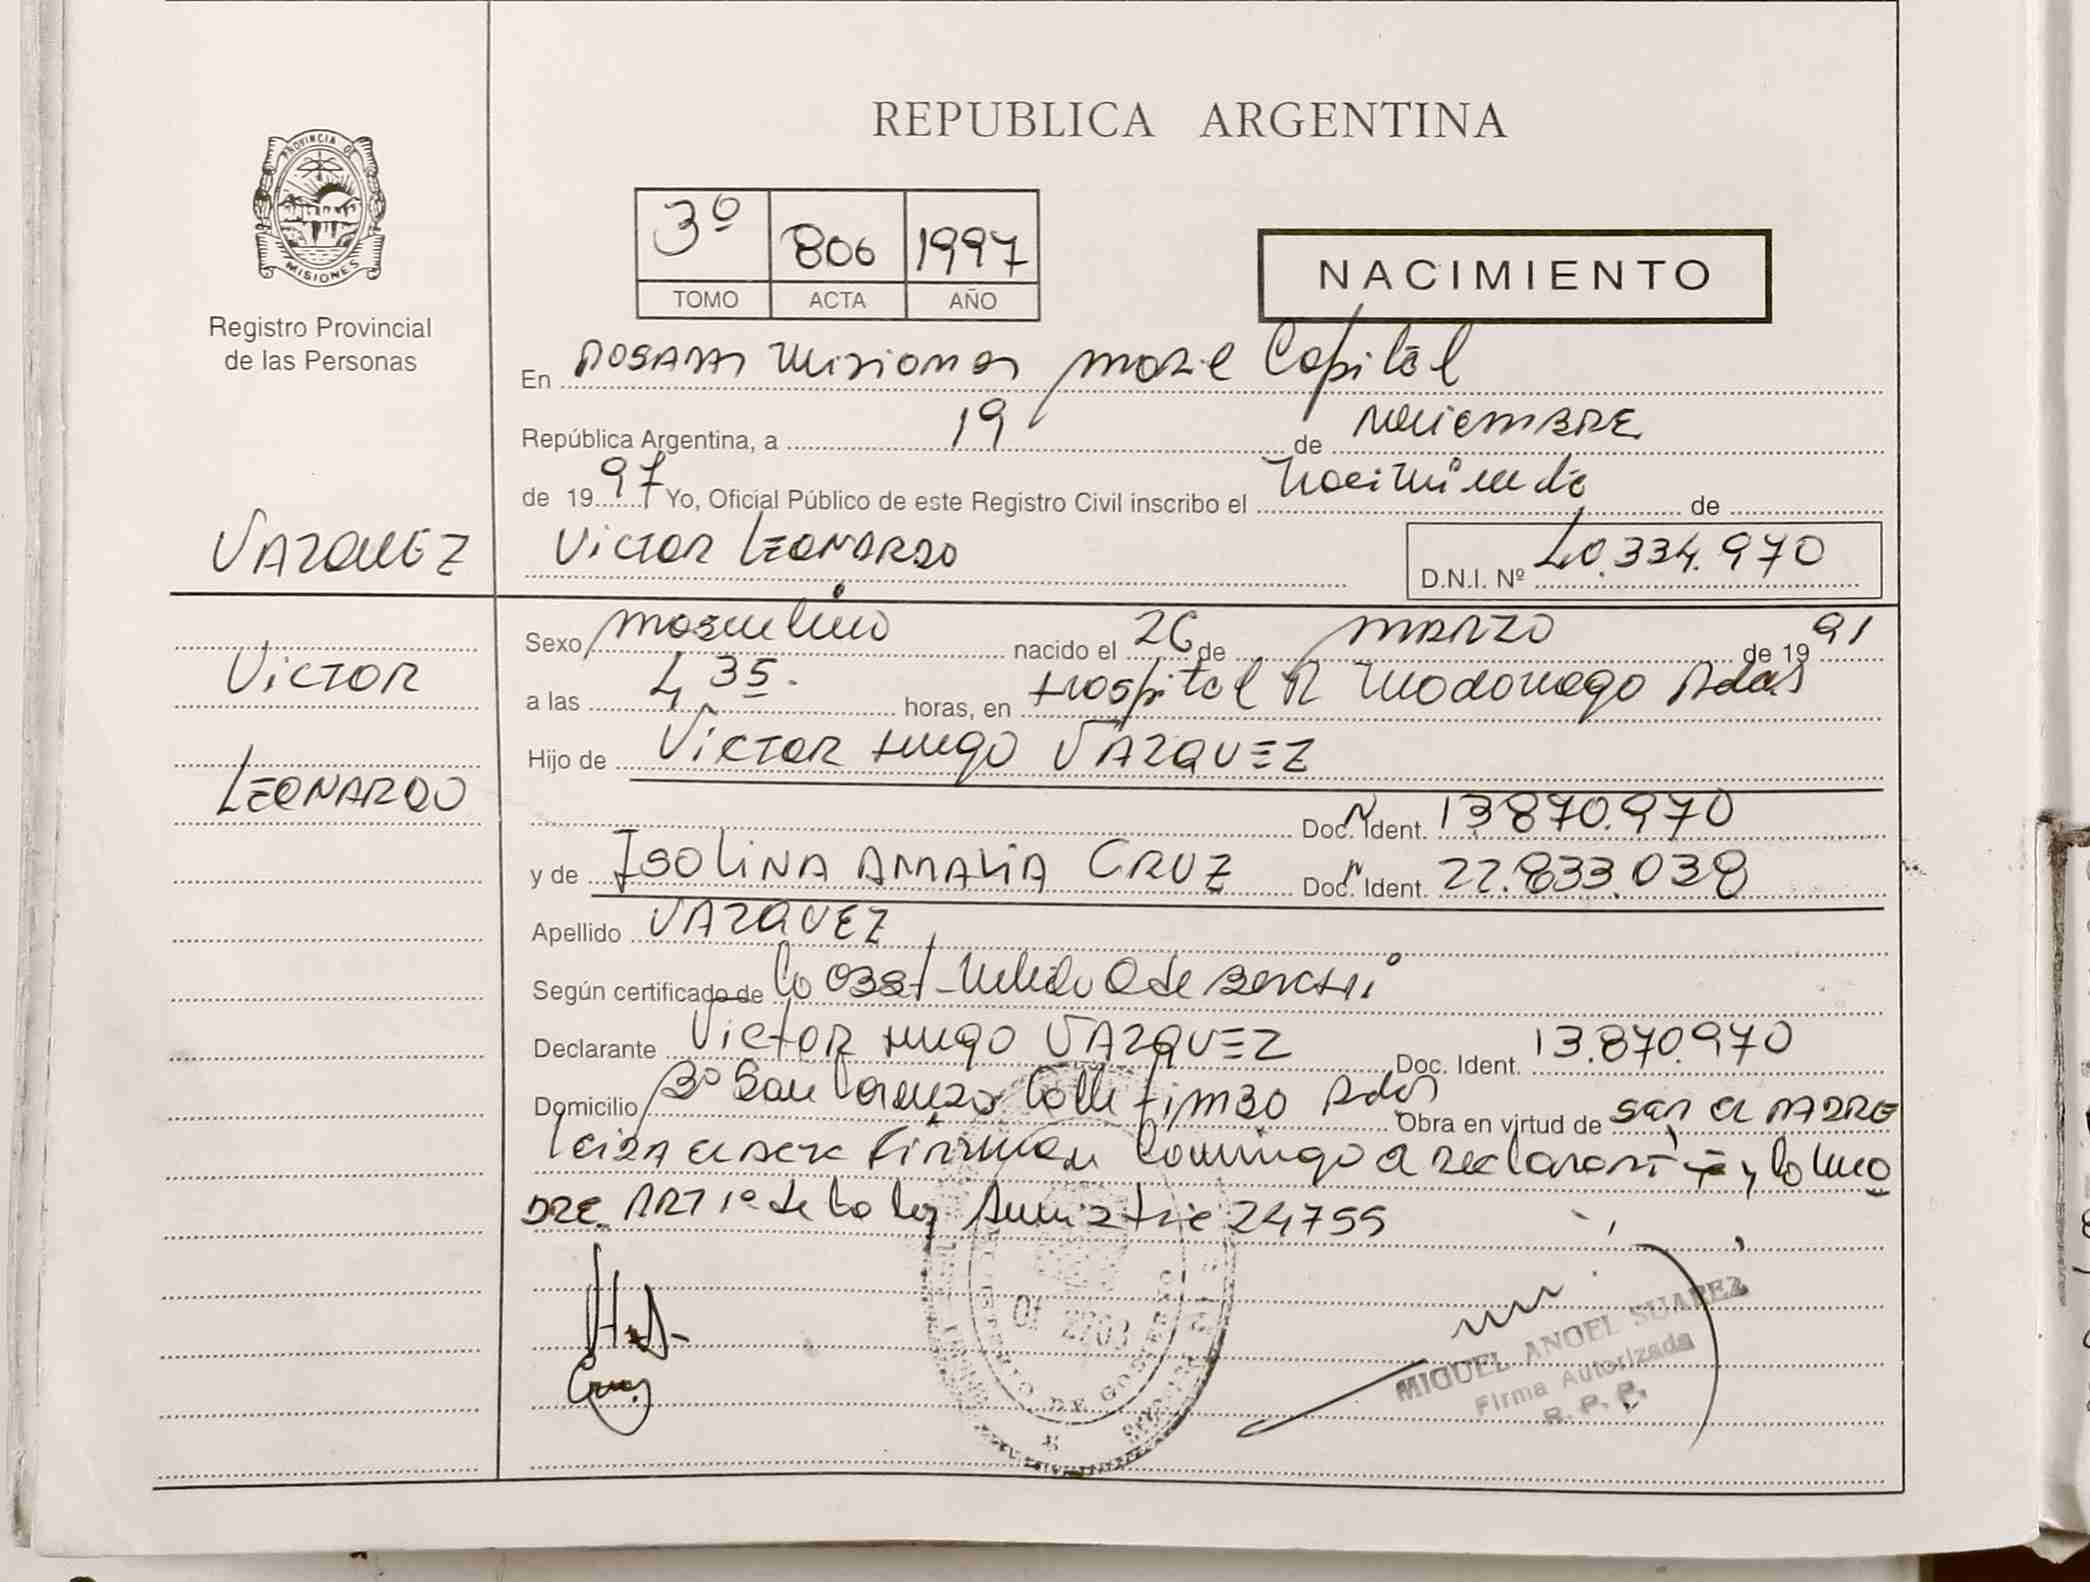 REPUBLICA ARGENTINA
PROVINCIA DE
MISIONES
Registro Provincial
de las Personas
3º 806 1997
TOMO ACTA AÑO
NACIMIENTO
En POSADAS Misiones Capital
República Argentina, a 19 de NOVIEMBRE
de 1997 Yo, Oficial Público de este Registro Civil inscribo el Nacimiento de
VAZQUEZ
VICTOR LEONARDO D.N.I. Nº 40.334.970
Sexo masculino nacido el 26 de MARZO de 1991
VICTOR
a las 4,35. horas, en Hospital R Madariaga Pdas
Hijo de VICTOR HUGO VAZQUEZ
LEONARDO
Doc. Ident. 13.870.970
y de ISOLINA AMALIA CRUZ Doc. Ident. 22.833.038
Apellido VAZQUEZ
Según certificado de la Obst. de
Declarante VICTOR HUGO VAZQUEZ Doc. Ident. 13.870.970
Domicilio Bº San Lorenzo Calle TIMBO Pdas Obra en virtud de SER el PADRE
Leida el ACTA FIRMAN conmigo el declarante y la MA
DRE. ART 1º de la ley Amnistia 24755
Cruz
MINISTERIO DE GOBIERNO
MIGUEL ANGEL SUAREZ
Firma Autorizada
R. P. P.